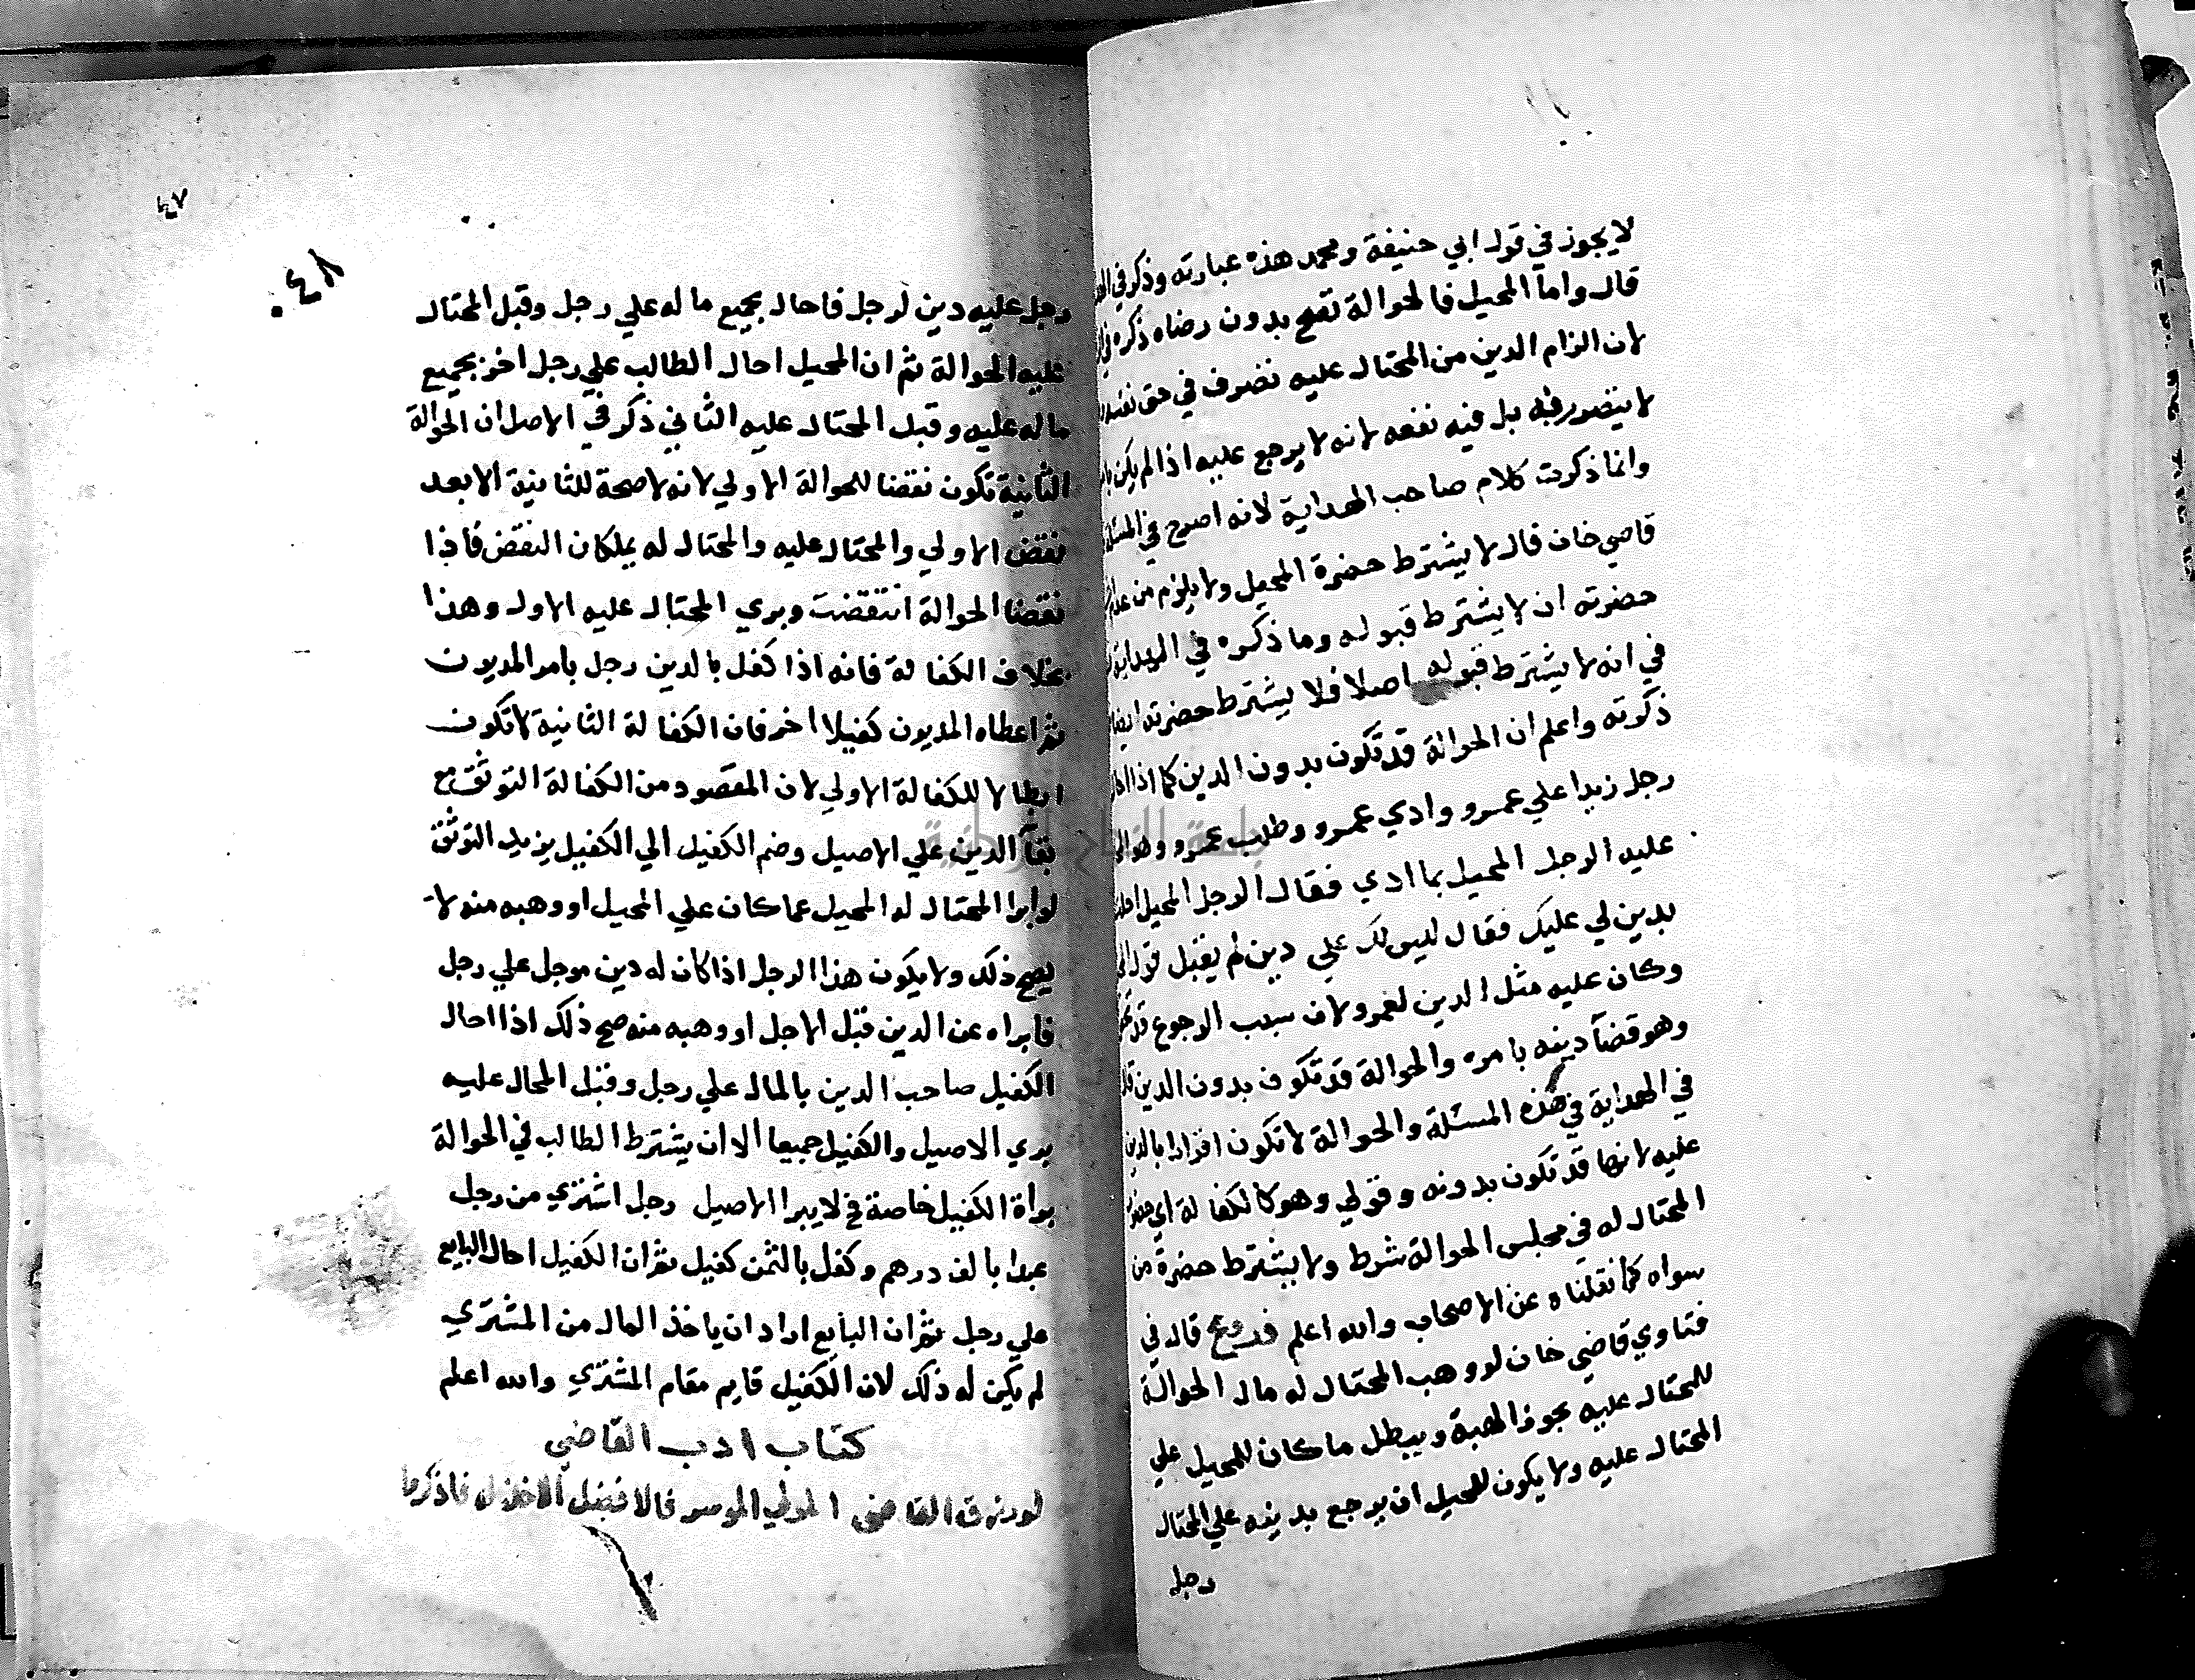 لا يجوز في قول ابي حنيفة ومحمد هذه عبارته وذكر في
قال واما المحيل فالحوالة تصح بدون رضاه ذكره في
لان التزام الدين من المحتال عليه تصرف في حق نفسه
لا يتضرر به بل فيه نفعه لانه لا يرجع عليه اذا لم يكن
وانما ذكرت كلام صاحب الهداية لانه اصرح في
قاضي خان قال لا يشترط حضرة المحيل ولا يلزم من عدم
حضرته ان لا يشترط قبوله وما ذكره في الهداية
في انه لا يشترط قبوله اصلا فلا يشترط حضرته
ذكرته واعلم ان الحوالة قد تكون بدون الدين كما اذا
رجل زيدا علي عمرو وادي عمرو وطلب عمرو وهو
عليه الرجل المحيل بما ادي فقال الرجل المحيل
بدين لي عليك فقال ليس لك علي دين لم يقبل قول
وكان عليه مثل الدين لعمرو لان سبب الرجوع قد
وهو قضآ دينه بامره والحوالة قد تكون بدون الدين
في الهداية في هذه المسئلة والحوالة لا تكون اقرارا بالدين
عليه لانها قد تكون بدونه وقولي وهو كالكفالة اي
المحتال له في مجلس الحوالة شرط ولا يشترط حضرة من
سواه كما نقلناه عن الاصحاب والله اعلم فروع قال في
فتاوي قاضي خان لو وهب المحتال له مال الحوالة
للمحتال عليه تجوز الهبة ويبطل ما كان للمحيل علي
المحتال عليه ولا يكون للمحيل ان يرجع بدينه علي المحتال
رجل
٤٧
٠٤٨
رجل عليه دين لرجل فاحال بجميع ماله علي رجل وقبل المحتال
عليه الحوالة ثم ان المحيل احال الطالب علي رجل اخر بجميع
ماله عليه وقبل المحتال عليه الثاني ذكر في الاصل ان الحوالة
الثانية تكون نقضا للحوالة الاولي لانه لا صحة للثانية الا بعد
نقض الاولي والمحتال عليه والمحتال له يملكان النقض فاذا
نقضا الحوالة انتقضت وبري المحتال عليه الاول وهذا
بخلاف الكفالة فانه اذا كفل بالدين رجل بامر المديون
ثم اعطاه المديون كفيلا اخر فان الكفالة الثانية لا تكون
ابطالا للكفالة الاولي لان المقصود من الكفالة التوثق مع
بقآ الدين علي الاصيل وضم الكفيل الي الكفيل يزيد التوثق
لو ابرا المحتال له المحيل عما كان علي المحيل او وهبه منه لا
يصح ذلك ولا يكون هذا الرجل اذا كان له دين موجل علي رجل
فابراه عن الدين قبل الاجل او وهبه منه صح ذلك اذا احال
الكفيل صاحب الدين بالمال علي رجل وقبل المحال عليه
بري الاصيل والكفيل جميعا الا ان يشترط الطالب في الحوالة
براة الكفيل خاصة فح لا يبرا الاصيل رجل اشتري من رجل
عبدا بالف درهم وكفل بالثمن كفيل ثم ان الكفيل احال البايع
علي رجل ثم ان البايع اراد ان ياخذ المال من المشتري
لم يكن له ذلك لان الكفيل قايم مقام المشتري والله اعلم
كتاب ادب القاضي
لو رزق القاضي المولي الموسر فالافضل